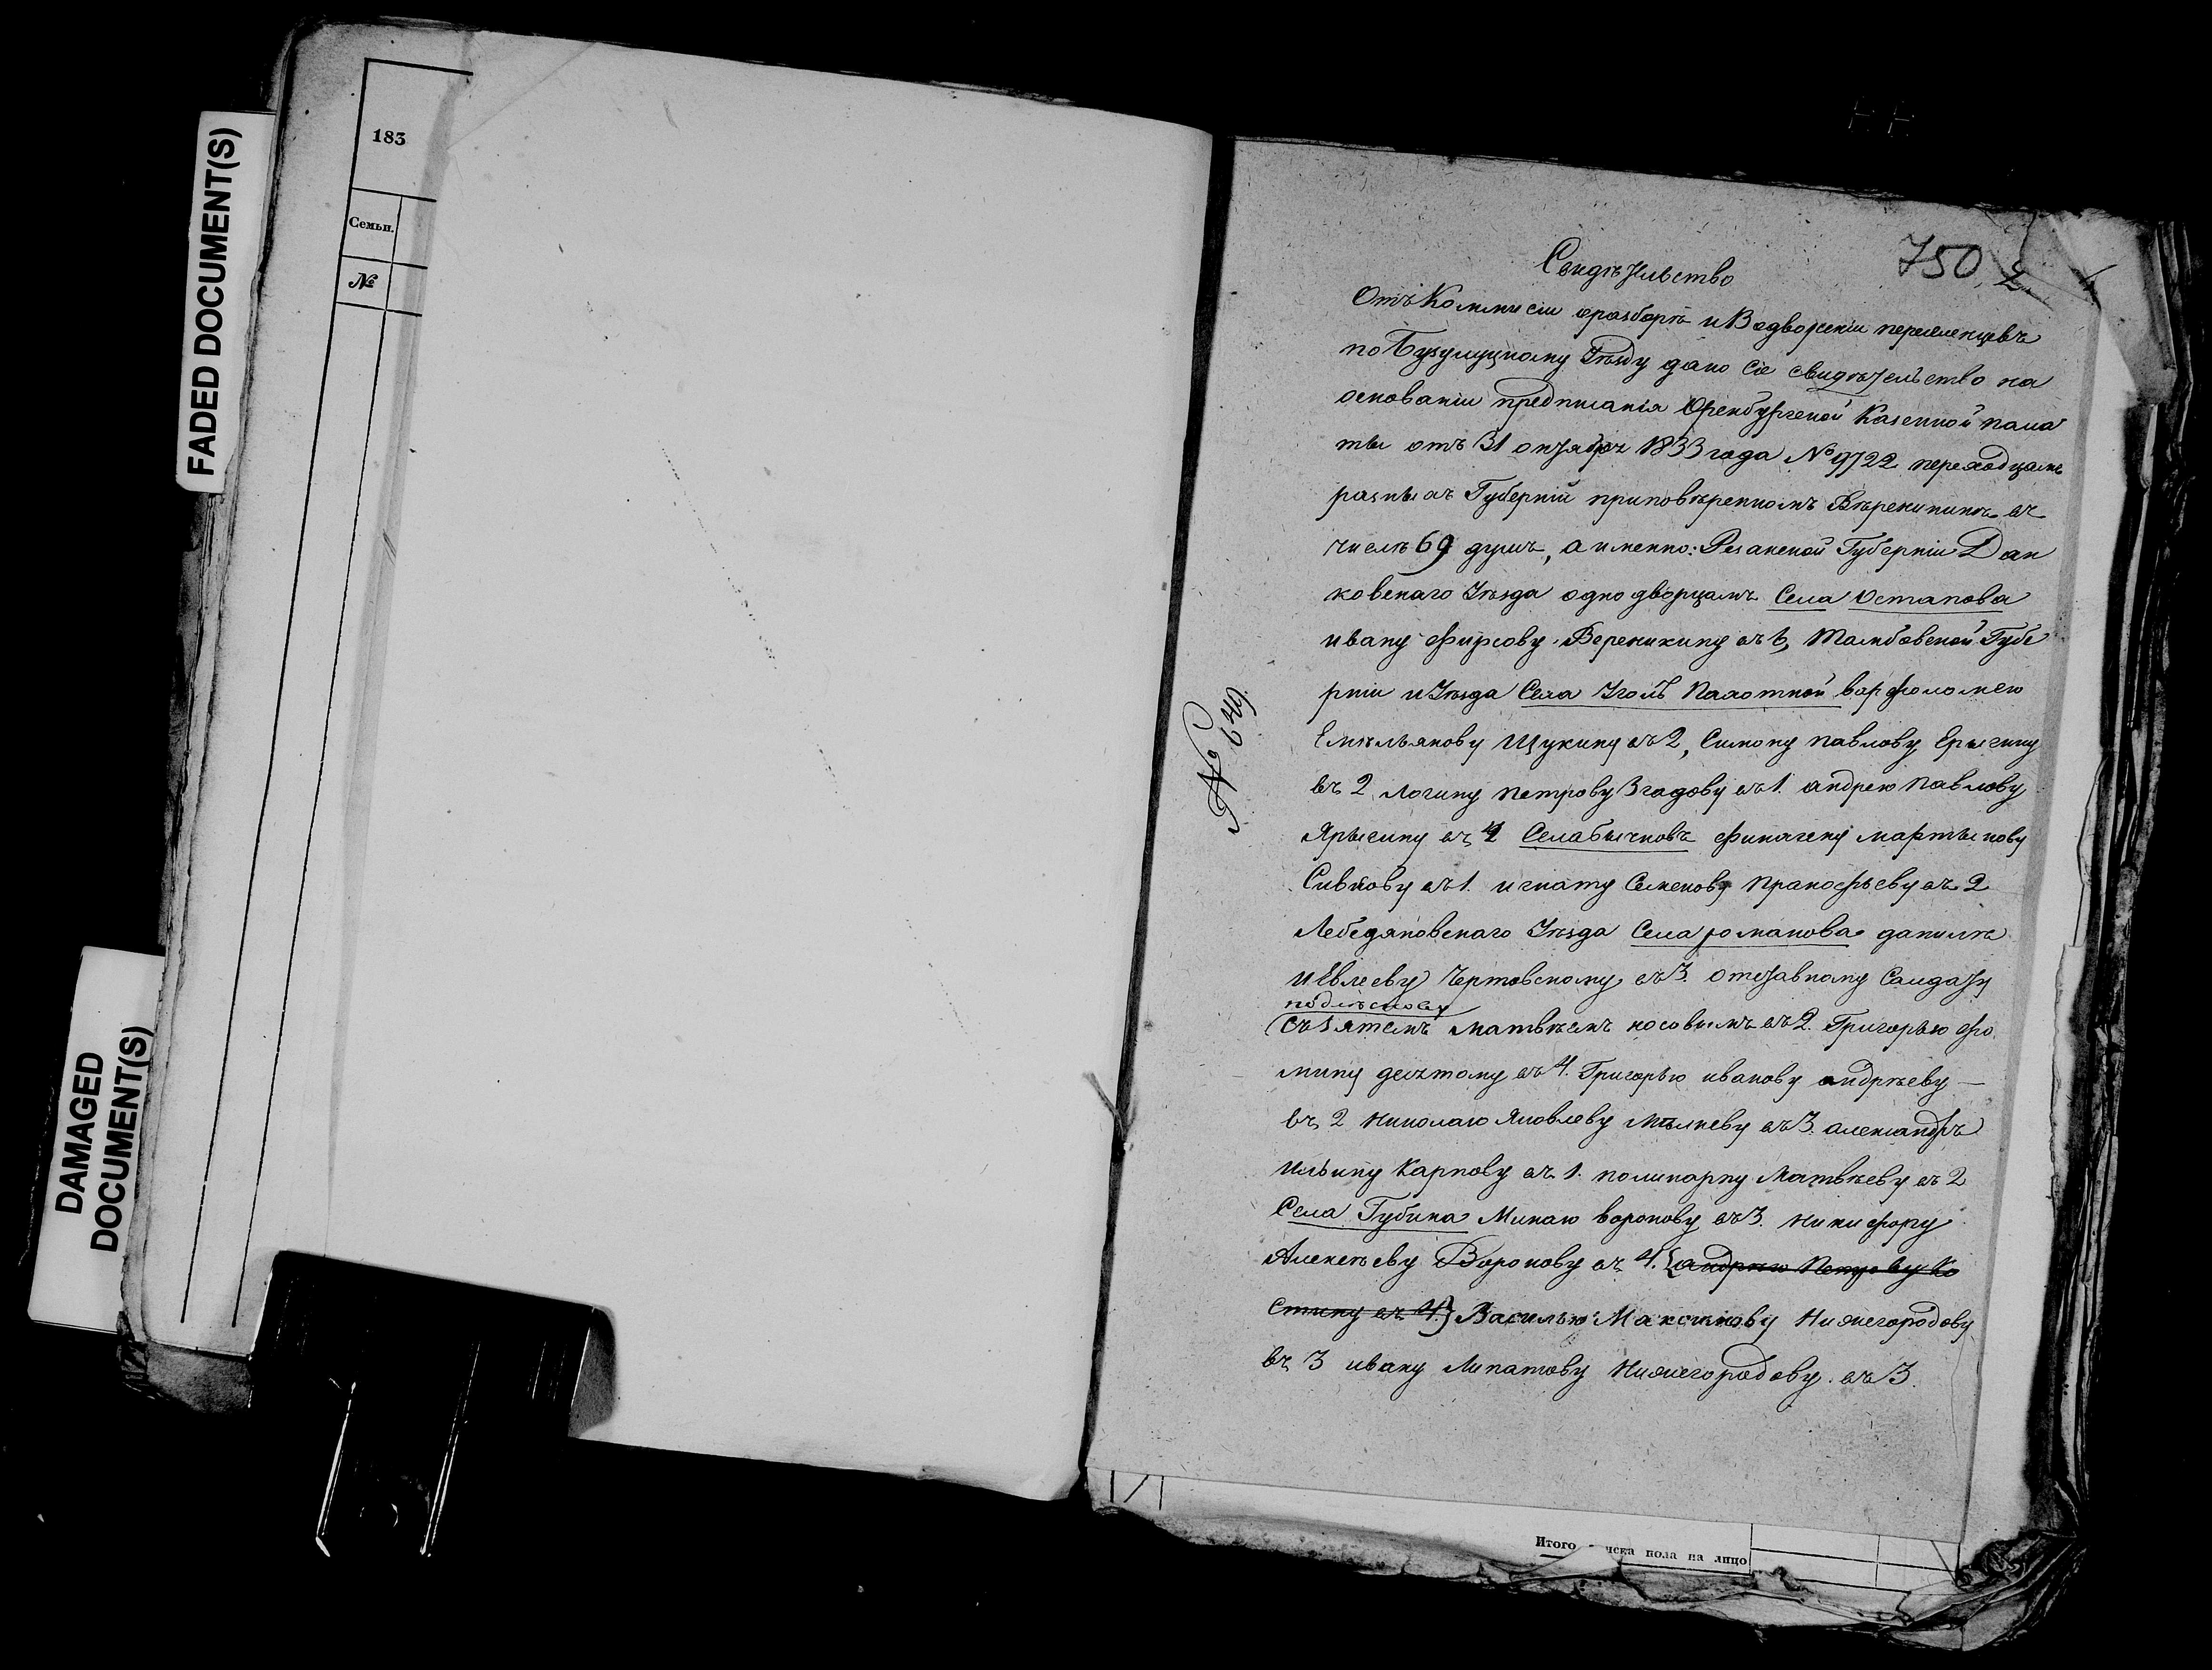 FADED DOCUMENT(S)
DAMAGED
DOCUMENT(S)
183
Семьи.
№
750
№ 649.
Свидѣтельство
Отъ Коммисіи о разборѣ и Водвореніи переселенцовъ
по Бузулуцкому Уѣзду дано Сіе свидѣтельство на
основаніи предписанія Оренбургской Казенной пала
ты отъ 31 октября 1833 года № 9722 переходцамъ
разныхъ Губерній при повѣренномъ Вереникинѣ въ
числѣ 69 душъ, а именно: Резанской Губерніи Дан
ковскаго Уѣзда однодворцамъ Села Остапова
ивану Фирсову Вереникину въ 6, Тамбовской Губе
рніи и Уѣзда Села Уголъ Палотной варфоломею
Емельянову Щукину въ 2, Симону павлову Ерыгину
въ 2 Логину Петрову Згадову въ 1. андрею Павлову
Ярыгину въ 4 Села бычковъ мартынову
въ 1. игнату Семенову Пранофьеву въ 2
Лебедяновскаго Уѣзда Села романова данилѣ
иЕвлеву Чертовскому въ 3. отставному Салдату
подлѣснову
съ зятемъ матвѣемъ носовымъ въ 2. Григорью Фо
мину десятому въ 4. Григорью иванову андрѣеву —
въ 2 Николаю Яковлеву въ 3. александрѣ
Ильину Карпову въ 1. поликарпу Матвѣеву въ 2
Села Губина Минаю воронову въ 3. никифору
Алексѣеву Воронову въ 4. {андрею Петрову Ко
стину въ 4.} Василью Максимову Нижегородову
въ 3 ивану Липатову Нижегородову въ 3.
Итого
пола на лицо